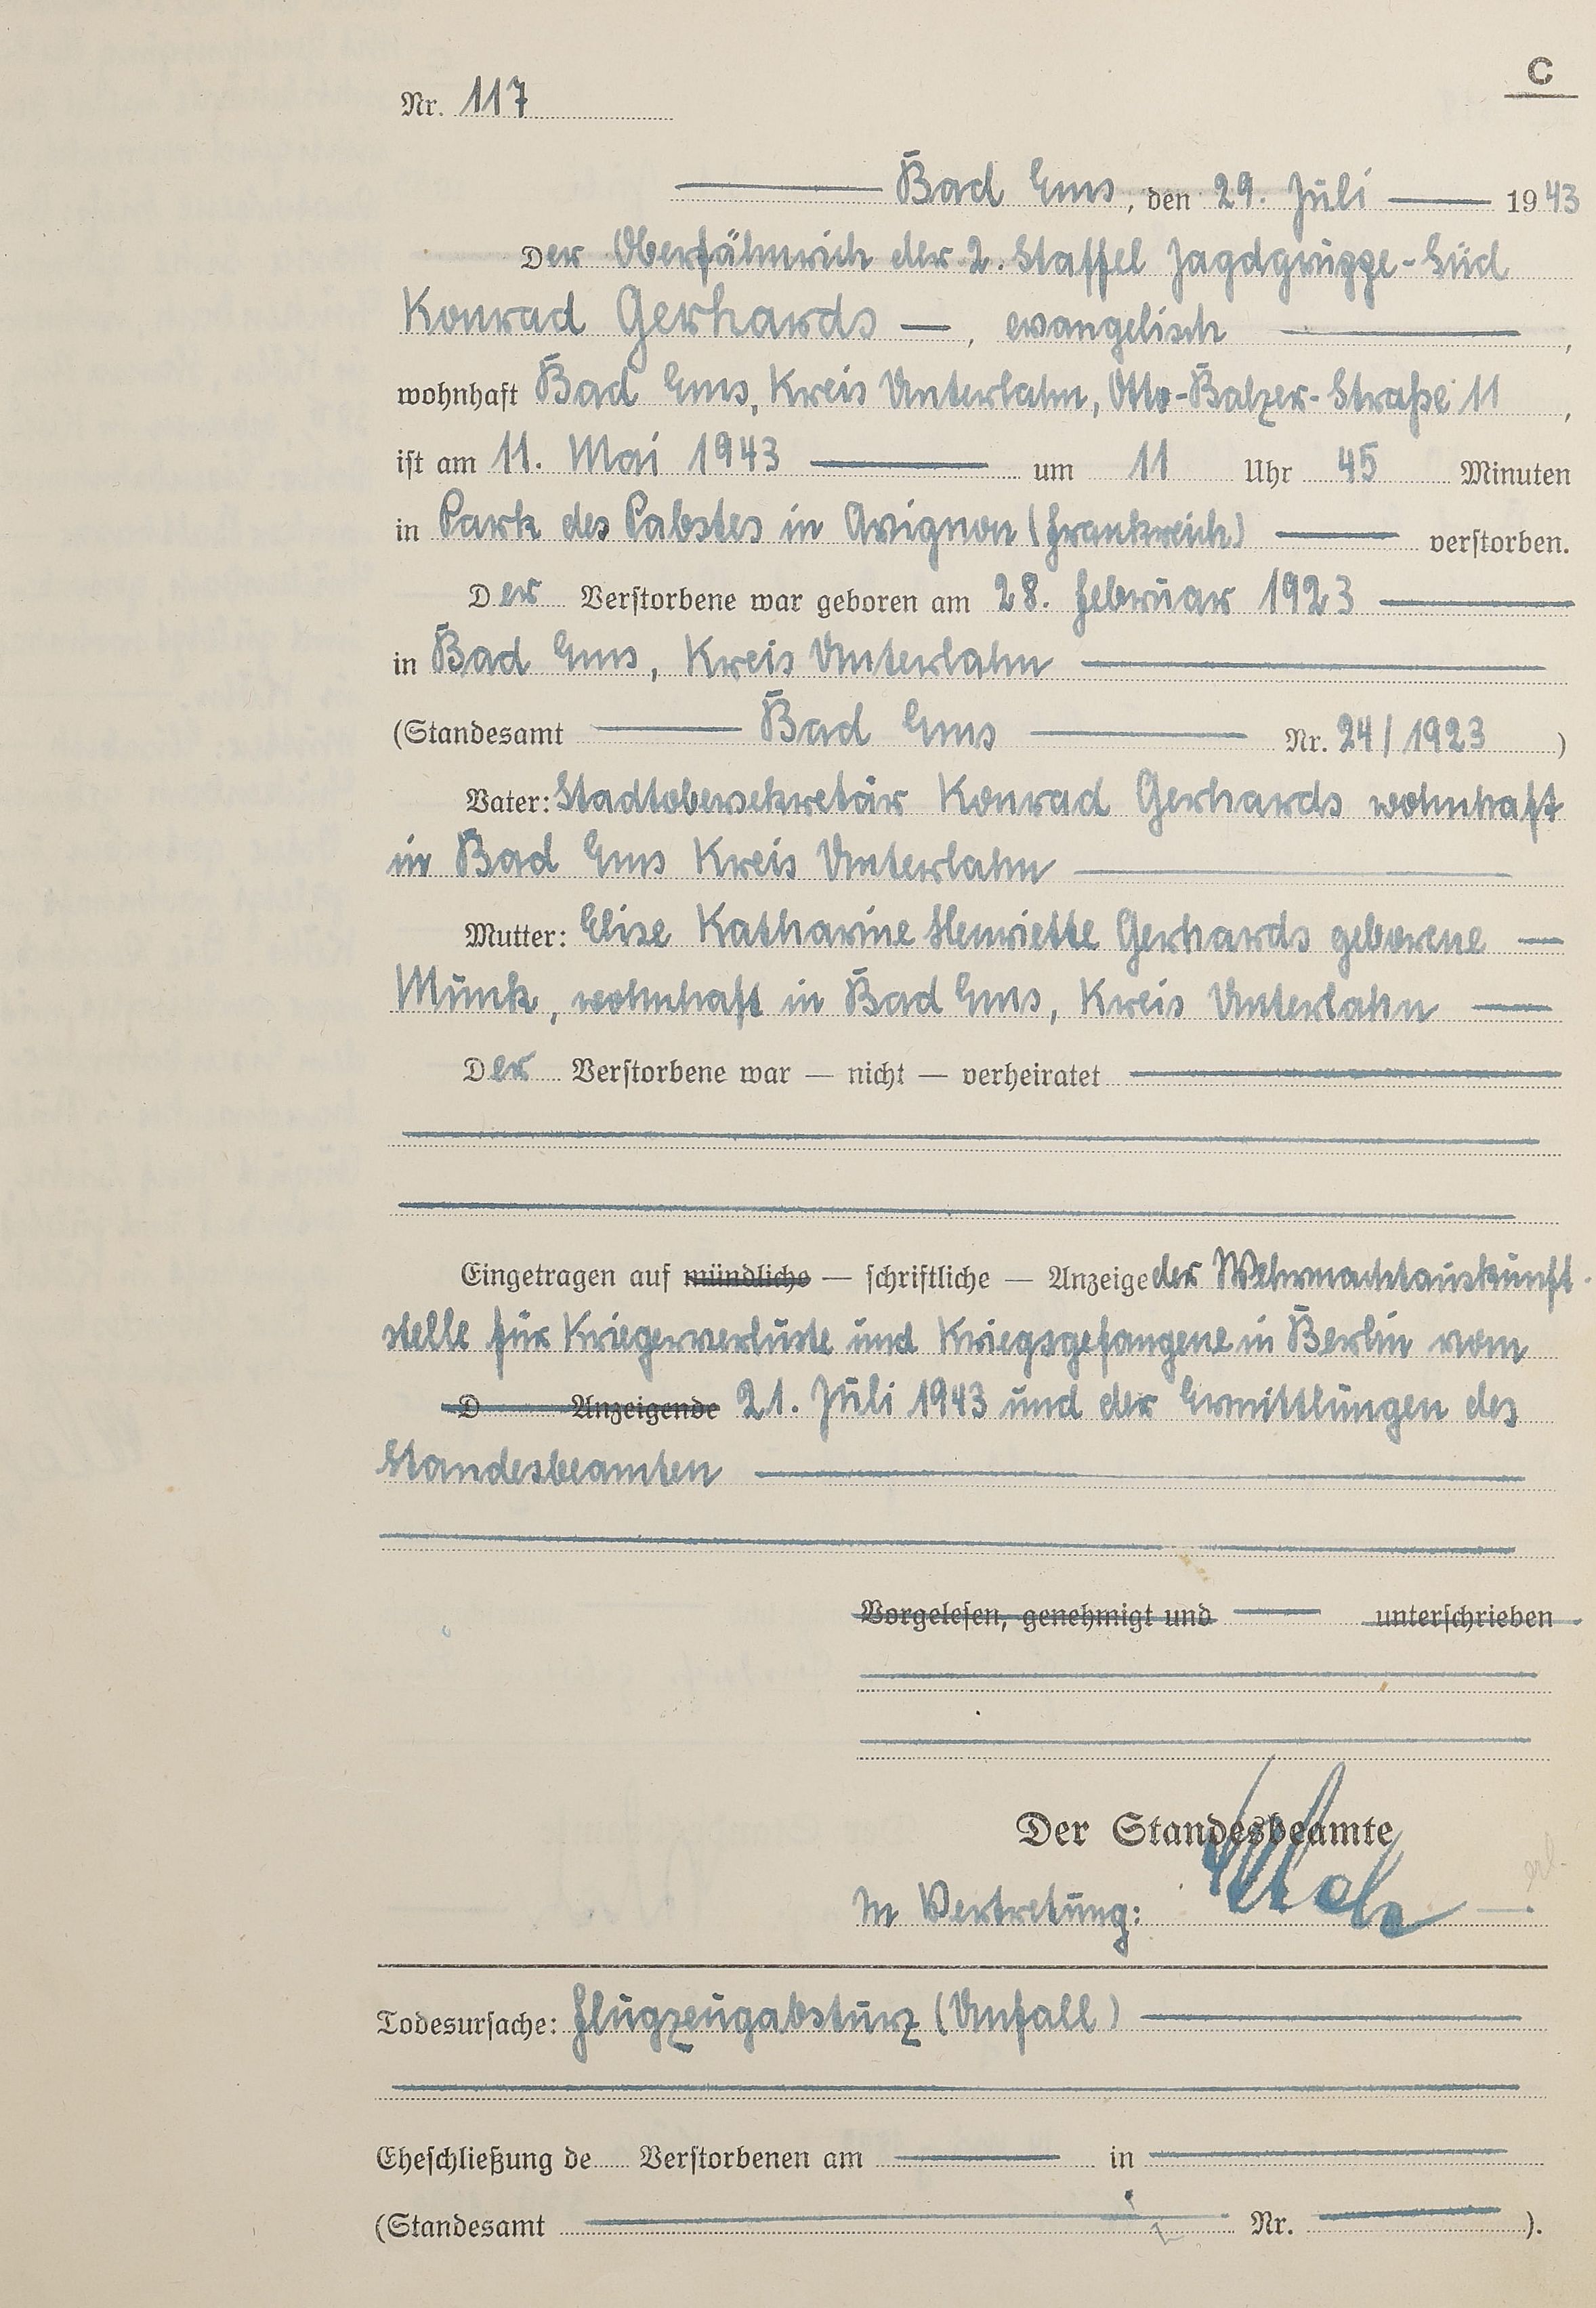 C
Nr. 117
Bad Ems, den 29. Juli 1943
Der Oberfähnrich der 2. Staffel Jagdgruppe-Süd
Konrad Gerhards —, evangelisch ,
wohnhaft Bad Ems, Kreis Unterlahn, Otto-Balzer-Straße 11 ,
ist am 11. Mai 1943 um 11 Uhr 45 Minuten
in Park des Pabstes in Avignon (Frankreich) verstorben.
Der Verstorbene war geboren am 28. Februar 1923
in Bad Ems, Kreis Unterlahn
(Standesamt Bad Ems Nr. 24/1923 )
Vater: Stadtobersekretär Konrad Gerhards wohnhaft
in Bad Ems Kreis Unterlahn
Mutter: Elise Katharine Henriette Gerhards geborene —
Munk, wohnhaft in Bad Ems, Kreis Unterlahn —
Der Verstorbene war — nicht — verheiratet
Eingetragen auf mündliche — schriftliche — Anzeige der Wehrmachtauskunft-
stelle für Kriegerverluste und Kriegsgefangene in Berlin vom
D Anzeigende 21. Juli 1943 und der Ermittlungen des
Standesbeamten
Vorgelesen, genehmigt und — unterschrieben
Der Standesbeamte
In Vertretung:
Todesursache: Flugzeugabsturz (Unfall)
Eheschließung de Verstorbenen am — in
(Standesamt Nr. ).